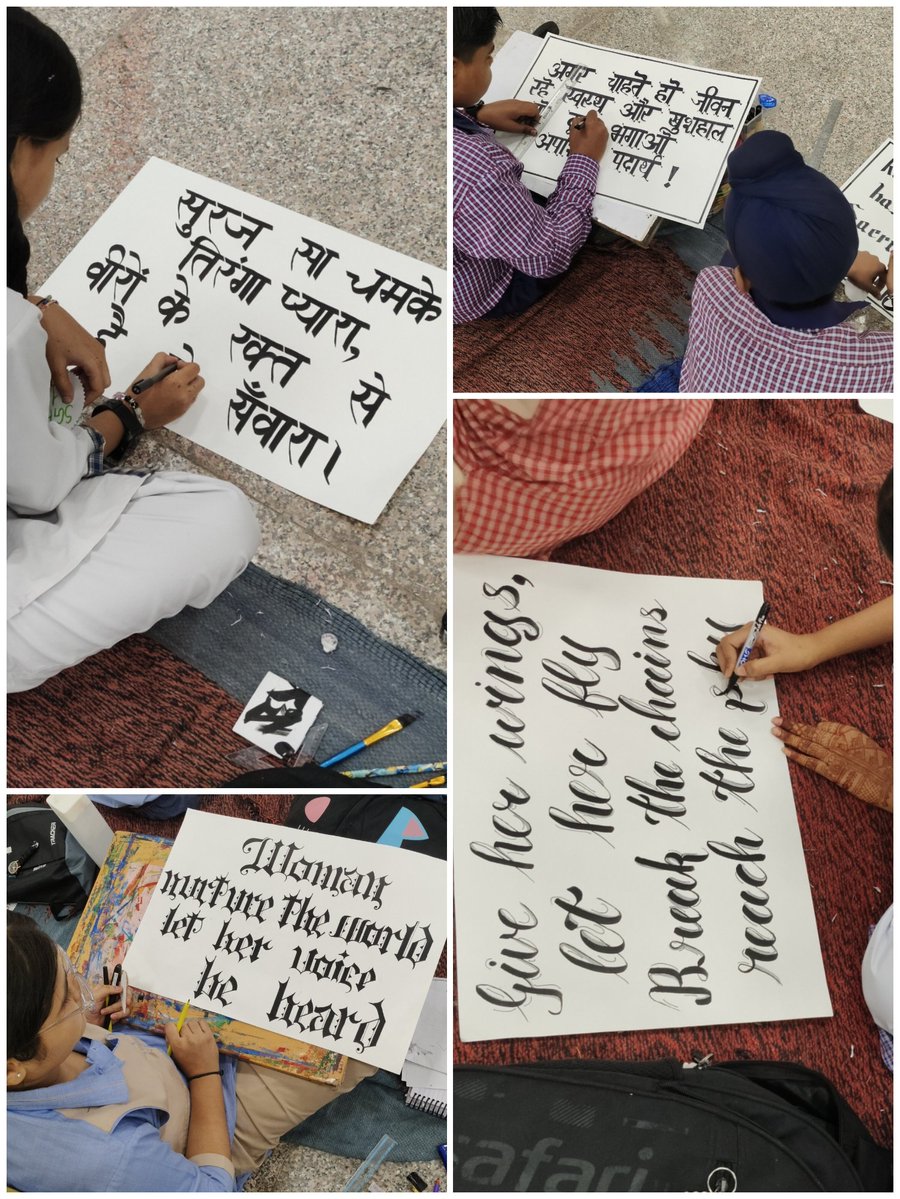 सुरज सा चमके
तिरंगा प्यारा,
वीरों के रक्त से
है सँवारा।
अगर चाहते हो जीवन
रहे स्वस्थ और खुशहाल
भगाओ
पदार्थ !
Give her wings,
let her fly
Break the chains
reach the
Woman
nurture the world
let her voice
be heard
safari